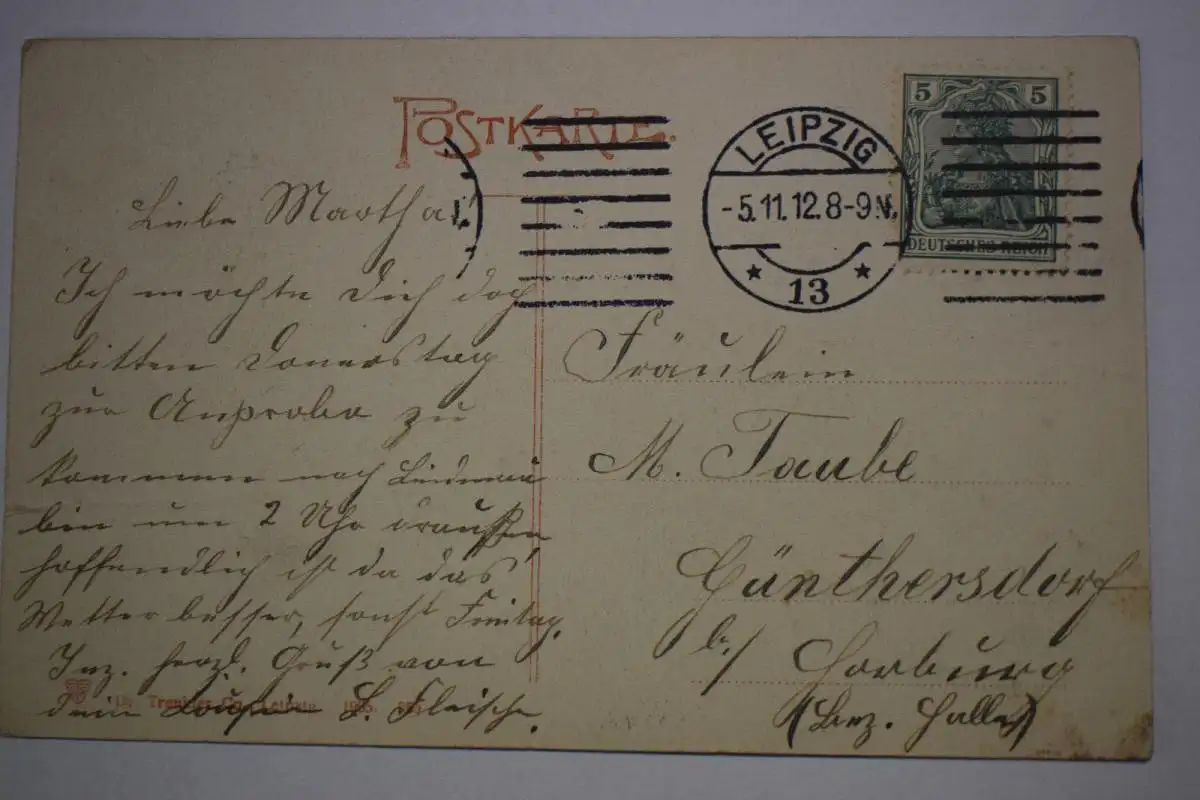 POSTKARTE.
LEIPZIG
-5.11.12.8-9N.
13
5 5
DEUTSCHES REICH
Liebe Martha!
Ich möchte Dich doch
bitten Donerstag
zur Anprobe zu
kommen nach
bin um 2 Uhr draußen,
hoffendlich ist da das
Wetter besser, sonst Freitag.
Inz. herzl. Gruß von
dein L. Fleische.
Fräulein
M. Taube
Günthersdorf
b./ Horburg
(Bez. Halle)
Dr. Trenkler Co., Leipzig. 1905.